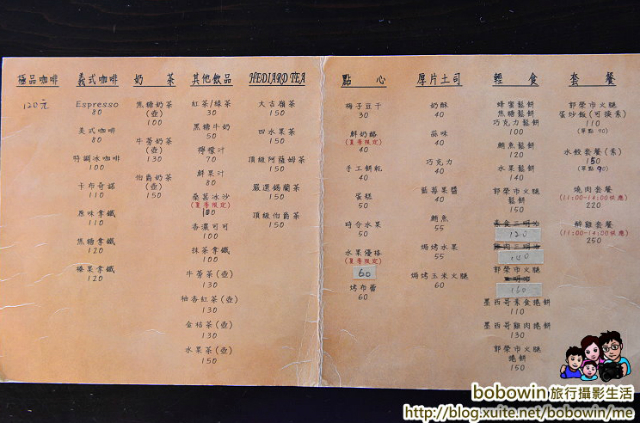 極品咖啡
120元
義式咖啡
Espresso
80
美式咖啡
80
特調冰咖啡
100
卡布奇諾
110
原味拿鐵
110
焦糖拿鐵
120
榛果拿鐵
120
奶茶
焦糖奶茶
(壺)
100
牛蒡奶茶
(壺)
130
伯爵奶茶
(壺)
150
其他飲品
紅茶/綠茶
30
黑糖牛奶
50
檸檬汁
70
鮮果汁
80
桑葚冰沙
(夏季限定)
100
香濃可可
100
抹茶拿鐵
100
牛蒡茶(壺)
130
柚香紅茶(壺)
130
金桔茶(壺)
130
水果茶(壺)
150
HEDIARD TEA
大吉嶺茶
150
四水果茶
150
頂級阿薩姆茶
150
嚴選錫蘭茶
150
頂級伯爵茶
150
點心
梅子豆干
30
鮮奶酪
(夏季限定)
40
手工餅乾
40
蛋糕
50
時令水果
50
水果優格
(夏季限定)
60
烤布蕾
60
厚片土司
奶酥
40
蒜味
40
巧克力
40
藍莓果醬
40
鮪魚
55
焗烤水果
55
焗烤玉米火腿
60
輕食
蜂蜜鬆餅
焦糖鬆餅
巧克力鬆餅
100
鮪魚鬆餅
120
水果鬆餅
140
郭榮市火腿
鬆餅
150
素食三明治
120
雞肉三明治
140
郭榮市火腿
三明治
160
墨西哥素食捲餅
110
墨西哥雞肉捲餅
130
郭榮市火腿
捲餅
150
套餐
郭榮市火腿
蛋炒飯(可換素)
110
(單點90)
水餃套餐(素)
150
(單點90)
燒肉套餐
(11:00-14:00供應)
220
醉雞套餐
(11:00-14:00供應)
250
bobowin 旅行攝影生活
http://blog.xuite.net/bobowin/me